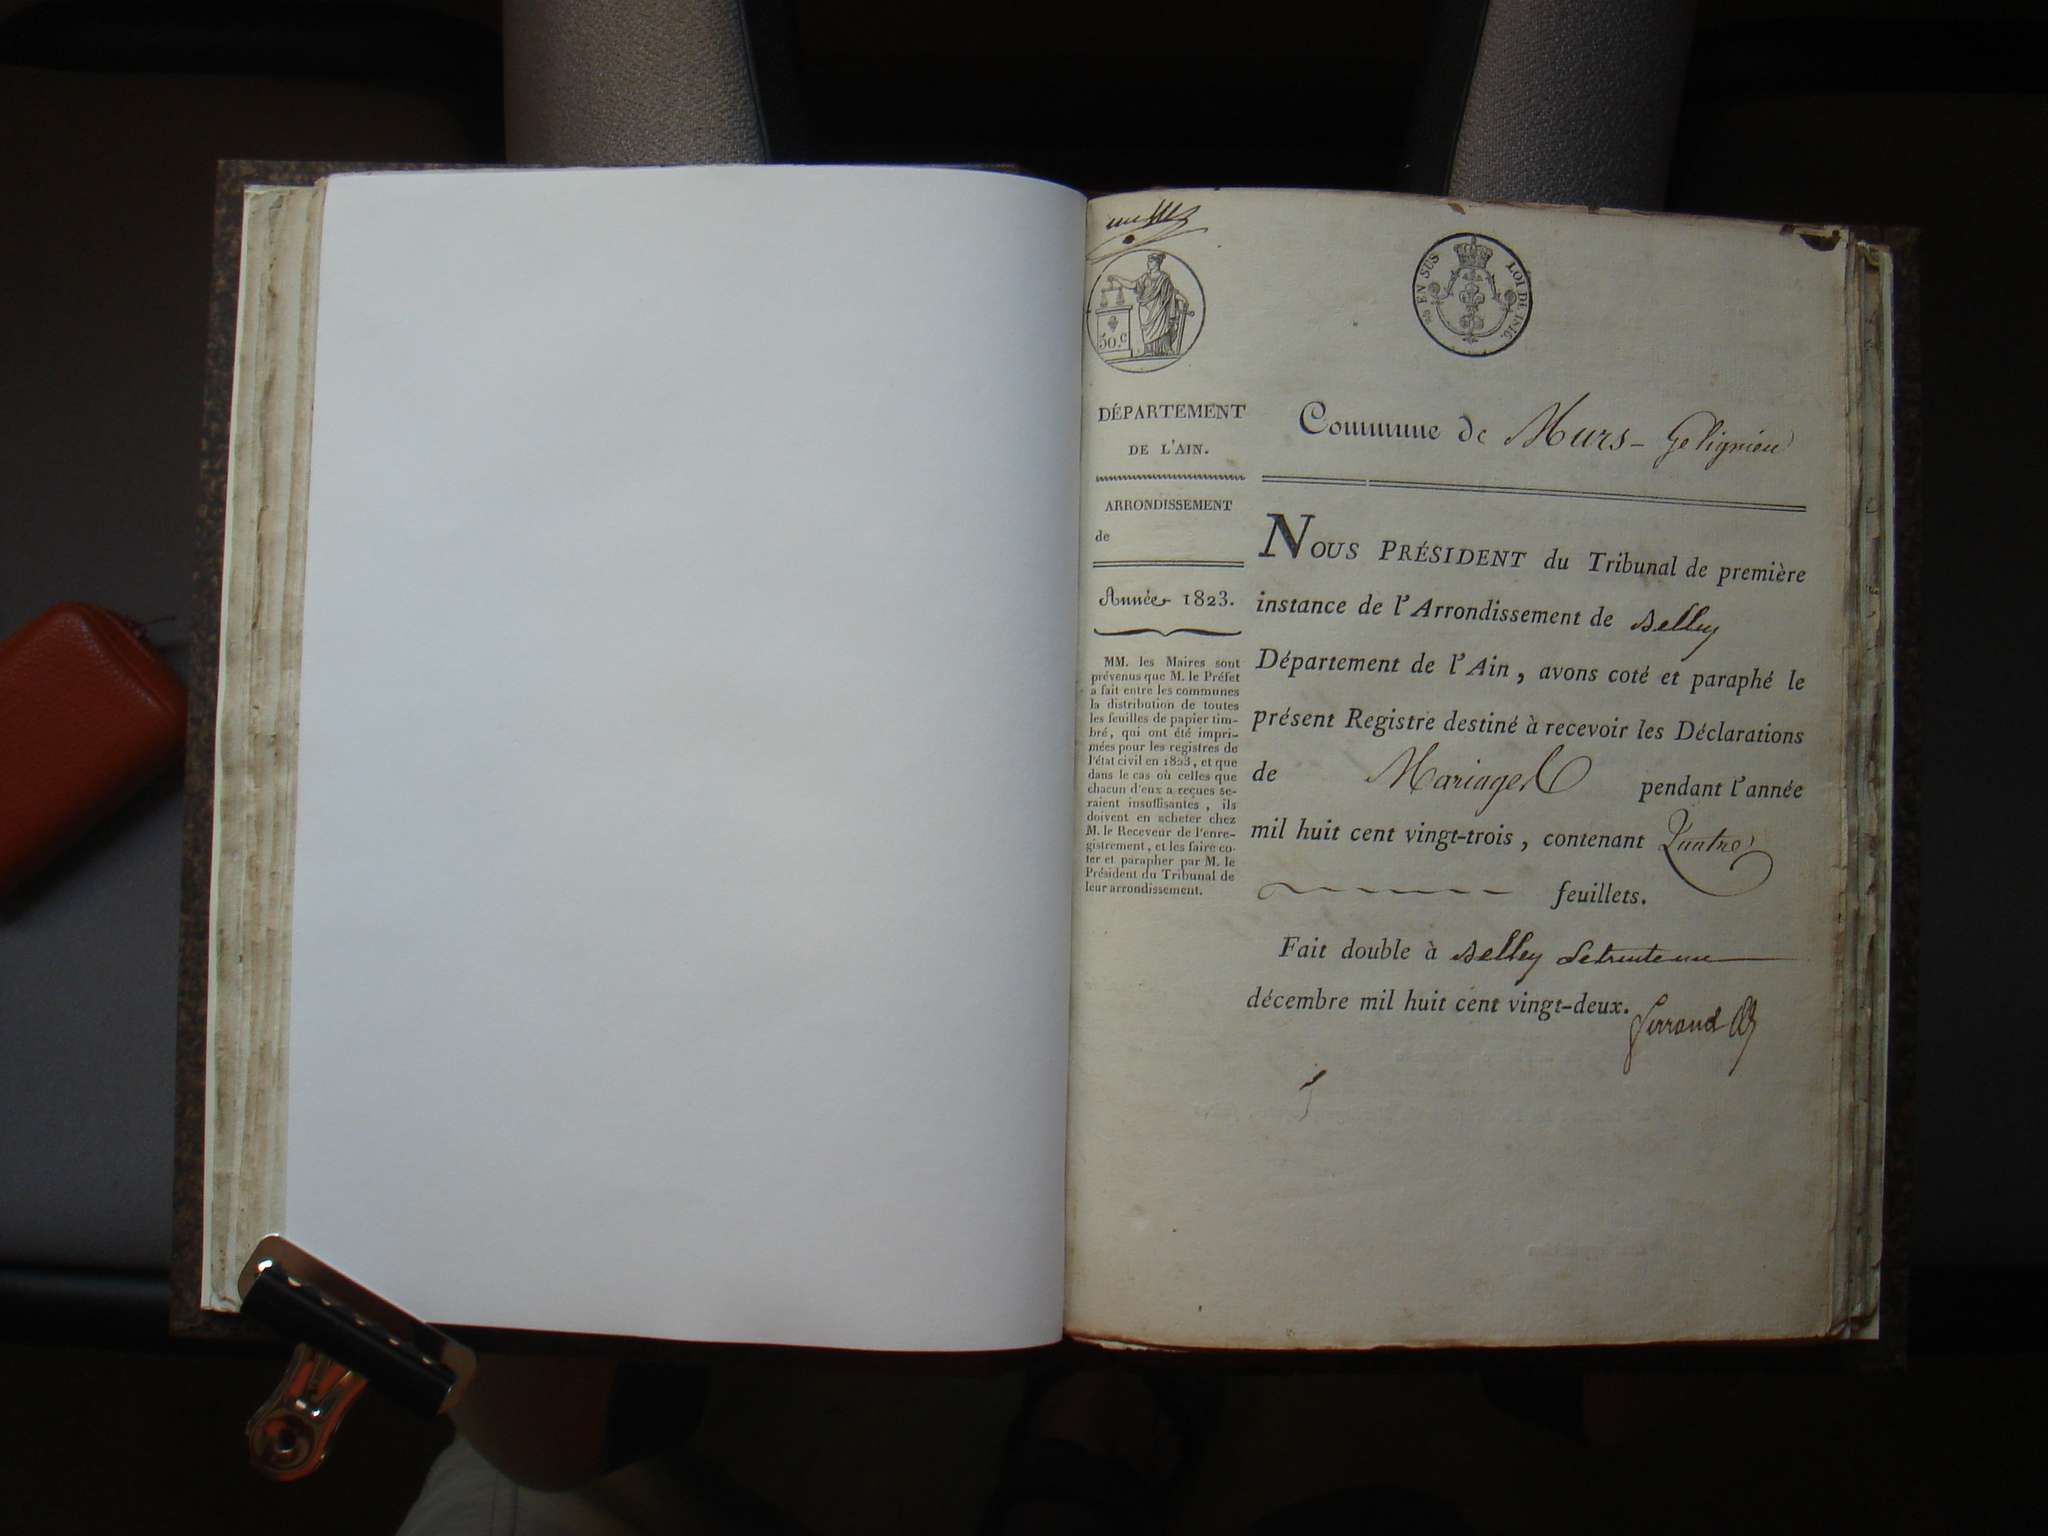 50.c
EN SUS
LOI DE 1816.
DÉPARTEMENT
DE L'AIN.
ARRONDISSEMENT
de
Année 1823.
MM. les Maires sont
prévenus que M. le Préfet
a fait entre les communes
la distribution de toutes
les feuilles de papier tim-
bré, qui ont été impri-
mées pour les registres de
l'état civil en 1823, et que
dans le cas où celles que
chacun d'eux a reçues se-
raient insuffisantes, ils
doivent en acheter chez
M. le Receveur de l'enre-
gistrement, et les faire co-
ter et parapher par M. le
Président du Tribunal de
leur arrondissement.
Commune de Murs-Gelignieu
NOUS PRÉSIDENT du Tribunal de première
instance de l'Arrondissement de Belley
Département de l'Ain, avons coté et paraphé le
présent Registre destiné à recevoir les Déclarations
de Mariages pendant l'année
mil huit cent vingt-trois, contenant Quatre
feuillets.
Fait double à Belley le trente un
décembre mil huit cent vingt-deux.